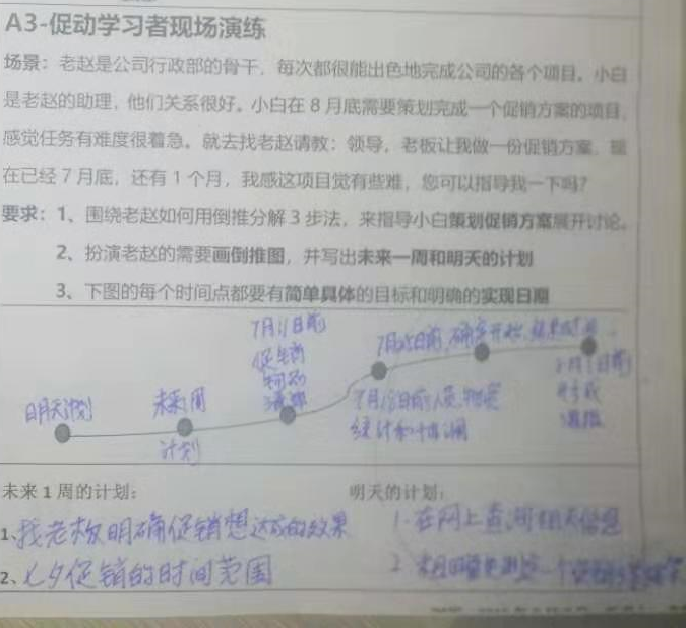 A3-促动学习者现场演练
场景：老赵是公司行政部的骨干，每次都很能出色地完成公司的各个项目。小白
是老赵的助理，他们关系很好。小白在8月底需要策划完成一个促销方案的项目，
感觉任务有难度很着急。就去找老赵请教：领导，老板让我做一份促销方案，现
在已经7月底，还有1个月，我感这项目觉有些难，您可以指导我一下吗？
要求：1、围绕老赵如何用倒推分解3步法，来指导小白策划促销方案展开讨论。
2、扮演老赵的需要画倒推图，并写出未来一周和明天的计划
3、下图的每个时间点都要有简单具体的目标和明确的实现日期
7月11日前
促销
物品
清单
7月25日前，确定开始
明天计划
未来1周
计划
7月18日前人员物资
统计和
日前
未来1周的计划：
明天的计划：
1、找老板明确促销想达成的效果
1、在网上查询相关信息
2、七夕促销的时间范围
2